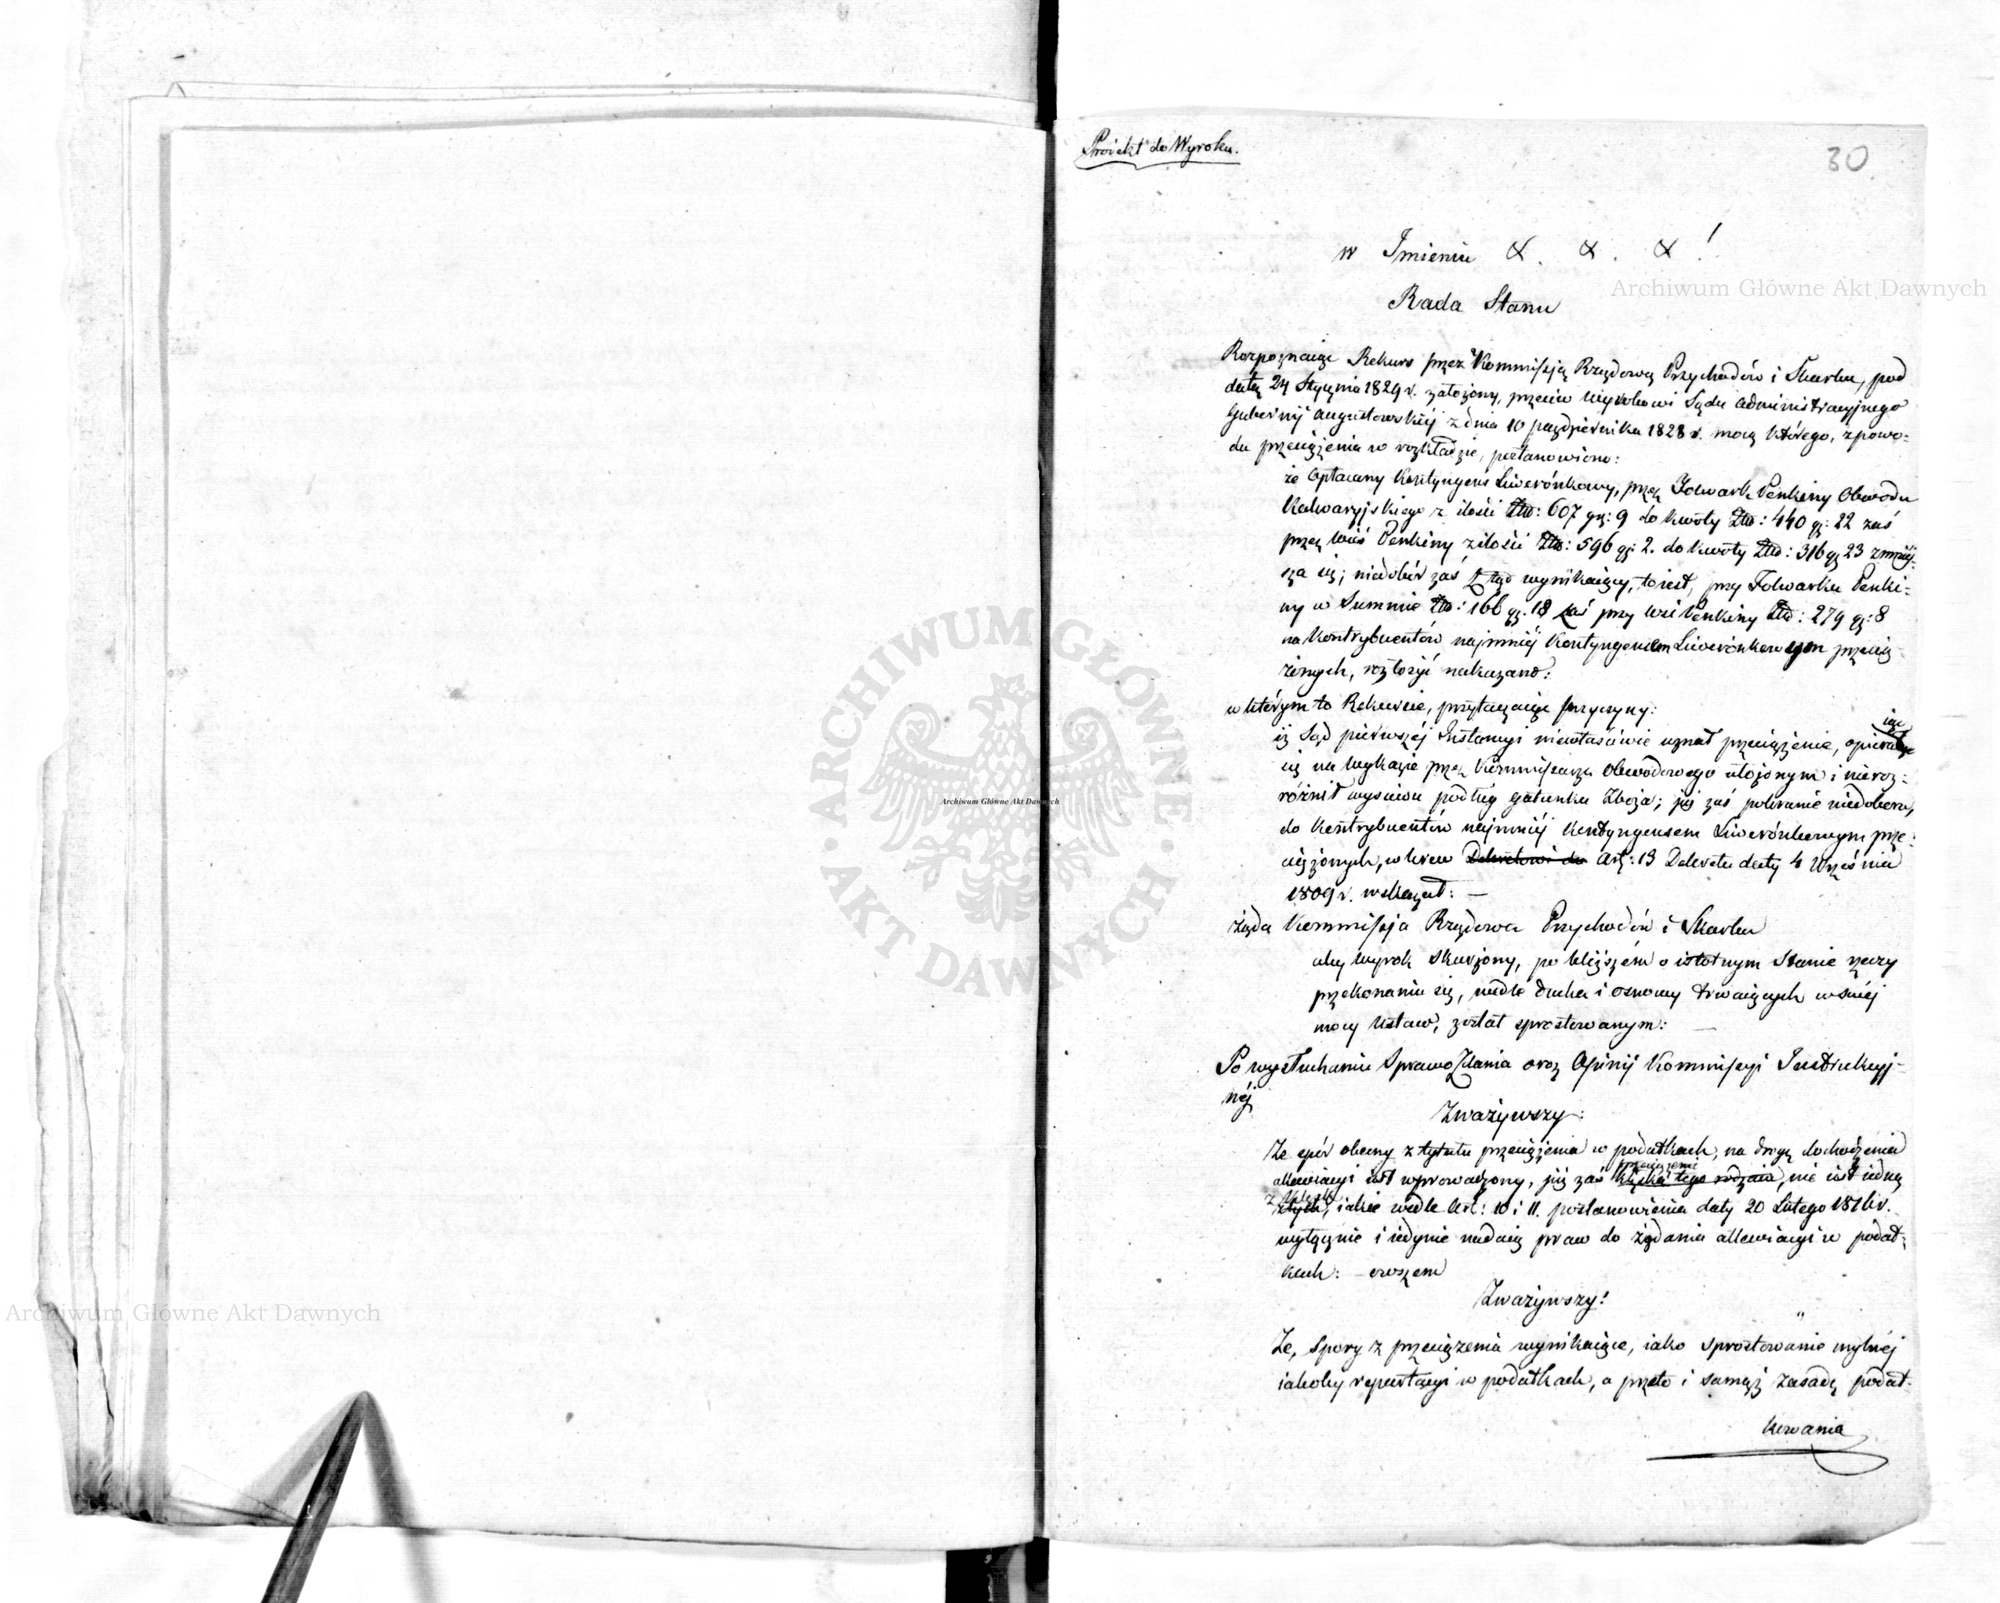 Proiekt do Wyroku.
30
w Imieniu &. &. &!
Rada Stanu
Rozpoznaiąc Rekurs przez Kommissją Rządową Przychodów i Skarbu, pod
datą 24 Stycznia 1829 r. założony, przeciw wyrokowi Sądu administracyjnego
Gubernij augustowskiéj z dnia 10 października 1828 r. mocą którego, z powo-
du przeciążenia w rozkładzie, postanowiono:
że opłacany Kontyngens Liwerónkowy, przez Folwark Penkiny Obwodu
Kalwaryjskiego z ilości Złtp: 607 gr: 9 do kwoty Złtp: 440 gr: 22 zaś
przez wieś Penkiny z ilości Złtp: 596 gr: 2. do kwoty Złtp: 316 gr 23 zmniéj-
sza się; niedobór zaś z tąd wynikaiący, to iest, przy Folwarku Penki-
ny w Summie Złtp: 166 gr. 18 zaś przy wsi Penkiny Złtp: 279 gr: 8
na kontrybuentów najmniéj Kontyngensem Liwerónkowym przecią-
żonych, rozłożyć nakazano:
w którym to Rekursie, przytaczaiąc przyczyny:
iż Sąd pierwszéj Instancyi niewłaściwie uznał przeciążenie, opieraiąc
się na wykazie przez Kommissarza Obwodowego ułożonym i nieroz-
różnił wysiewu podług gatunku Zboża; jéj zaś pobranie niedoboru,
do Kontrybuentów najmniéj Kontyngensem Liwerónkowym prze-
ciążonych, wbrew Dekretowi do Art: 13 Dekretu daty 4 Września
1809 r. wskazał: —
żąda Kommissja Rządowa Przychodów i Skarbu
aby wyrok skarżony, po bliższém o istotnym Stanie rzeczy
przekonaniu się, wedle ducha i osnowy trwaiących w swéj
mocy Ustaw, został sprostowanym: —
Po wysłuchaniu Sprawozdania oraz Opinij Kommissyi Instrukcyj-
néj
Zważywszy:
Że spór obecny z tytułu przeciążenia w podatkach, na drogę dochodzenia
allewiacyi iest wprowadzony, jéj zaś przeciążenie klęska tego rodzaiu, nie iest iedną
z klęsk z tych, iakie wedle Art: 10 i 11. postanowienia daty 20 Lutego 1816 r.
wyłącznie i iedynie nadaią praw do żądania allewiacyi w podat-
kach: — owszem
Zważywszy!
Że, spory z przeciążenia wynikaiące, iako sprostowanie mylnéj
iakoby repartycyi w podatkach, a przeto i samąż zasadę podat-
kowania
Archiwum Główne Akt Dawnych
Archiwum Główne Akt Dawnych
Archiwum Główne Akt Dawnych
ARCHIWUM GŁÓWNE · AKT DAWNYCH ·